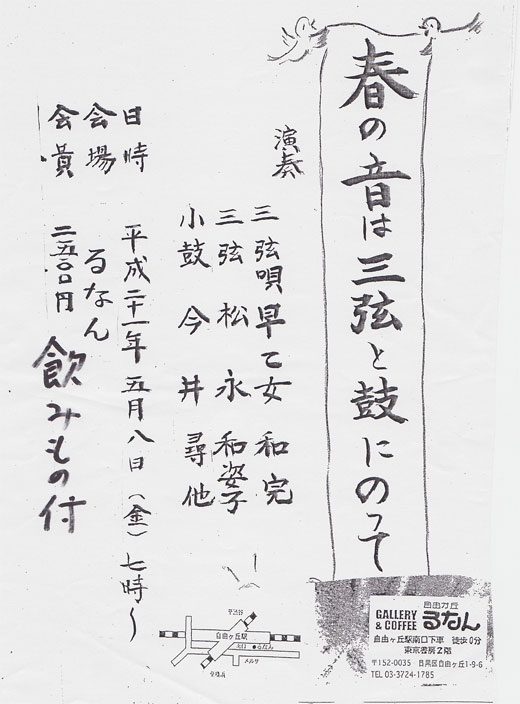 春の音は三弦と鼓にのって
演奏
三弦唄 早乙女 和完
三弦 松永 和姿子
小鼓 今井 尋也
日時 平成二十一年 五月八日(金)七時〜
会場 るなん
会費 二五〇〇円 飲みもの付
至渋谷
自由ヶ丘駅
南口 ●るなん
メルサ
至横浜
自由が丘
GALLERY & COFFEE るなん
自由ヶ丘駅南口下車 徒歩0分
東京書房2階
〒152-0035 目黒区自由ヶ丘1-9-6
TEL 03-3724-1785